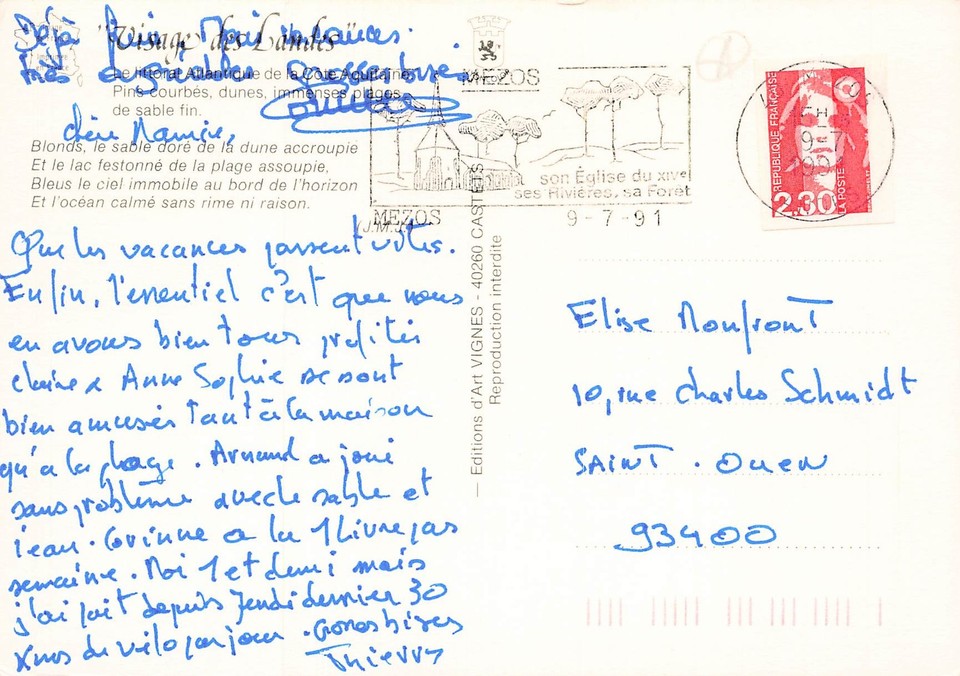 Déjà fini. Mais vacances.
"Visage des Landes"
Le littoral Atlantique de la Côte Aquitaine
Pins courbés, dunes, immenses plages
de sable fin.
Chère Mamie,
Blonds, le sable doré de la dune accroupie
Et le lac festonné de la plage assoupie,
Bleus le ciel immobile au bord de l'horizon
Et l'océan calmé sans rime ni raison.
(J.M.J.)
Que les vacances passent vites.
Enfin, l'essentiel c'est que nous
en avons bien tous profités
Claire & Anne Sophie se sont
bien amusés tant à la maison
qu'à la plage. Arnaud a joué
sans problème avec le sable et
l'eau. Corinne a lu 1 livre par
semaine. Moi 1 et demi mais
j'ai fait depuis Jeudi dernier 30
kms de vélo par jour. Gros bises
Thierry
MEZOS
son Église du XIVe
ses Rivières, sa Forêt
MEZOS
9-7-91
— Editions d'Art VIGNES - 40260 CASTETS
Reproduction interdite
REPUBLIQUE FRANÇAISE
2.30
LA POSTE
9-7
Elise Monfront
10, rue Charles Schmidt
SAINT - OUEN
93400